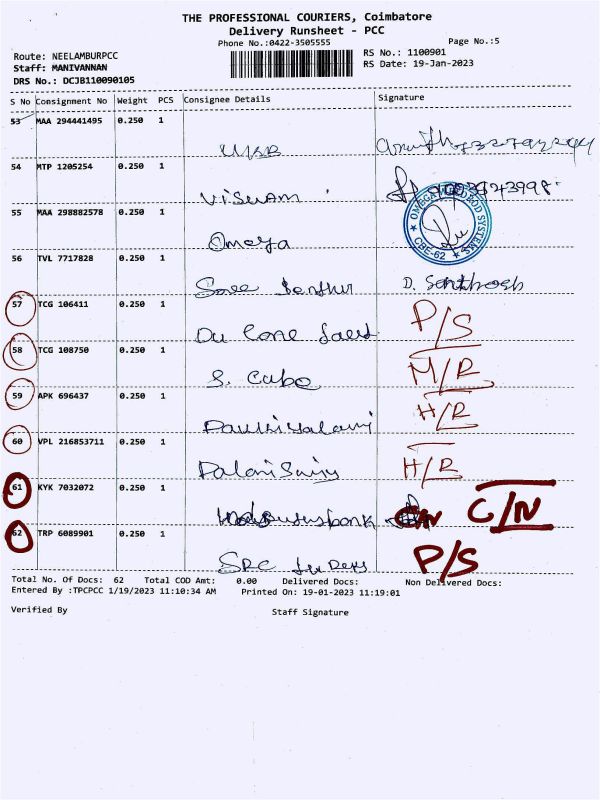 THE PROFESSIONAL COURIERS, Coimbatore
Delivery Runsheet - PCC
Phone No.:0422-3505555
Page No.:5
Route: NEELAMBURPCC
RS No.: 1100901
Staff: MANIVANNAN
RS Date: 19-Jan-2023
DRS No.: DCJB110090105
S No Consignment No Weight PCS Consignee Details Signature
53 MAA 294441495 0.250 1
54 MTP 1205254 0.250 1
Viswam
55 MAA 298882578 0.250 1
Omega
CBE-62
56 TVL 7717828 0.250 1
Sree D. Santhosh
57 TCG 106411 0.250 1 P/S
58 TCG 108750 0.250 1 M/R
S. Cube
59 APK 696437 0.250 1 H/R
60 VPL 216853711 0.250 1 H/R
61 KYK 7032072 0.250 1 C/N C/N
62 TRP 6089901 0.250 1 P/S
SRC
Total No. Of Docs: 62 Total COD Amt: 0.00 Delivered Docs: Non Delivered Docs:
Entered By :TPCPCC 1/19/2023 11:10:34 AM Printed On: 19-01-2023 11:19:01
Verified By Staff Signature